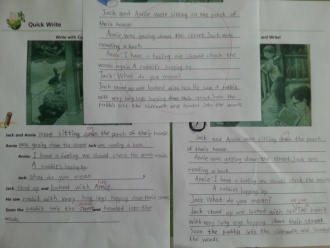 Jack and Annie were sitting on the porch of
their house.
Annie was gazing down the street. Jack was
reading a book.
Annie: I have a feeling we should check the
woods again. A rabbit's hopping by.
Jack: What do you mean?
Jack stood up and looked with Annie. He saw a rabbit
with very long legs hopping down their street. Soon the
rabbit left the sidewalk and headed into the woods.
Quick Write
Jack and Annie were sitting down the porch of their house.
Annie was gazing down the street. Jack was reading a book.
Annie: I have a feeling we should check the woods
A rabbit's hopping by.
Jack: What do you mean?
Jack stood up and looked with Annie.
He saw rabbit with very long legs hopping down their street.
Soon the rabbit left the and headed into the
woods.
Jack and Annie were sitting down the porch
of their house.
Annie was sitting down the street. Jack was
reading a book.
Annie: I have a feeling we should check the woods
A rabbit's hopping by.
Jack: What do you mean?
Jack stood up and looked with
with very long legs hopping down their street.
Soon the rabbit left the sidewalk and headed into
the woods.